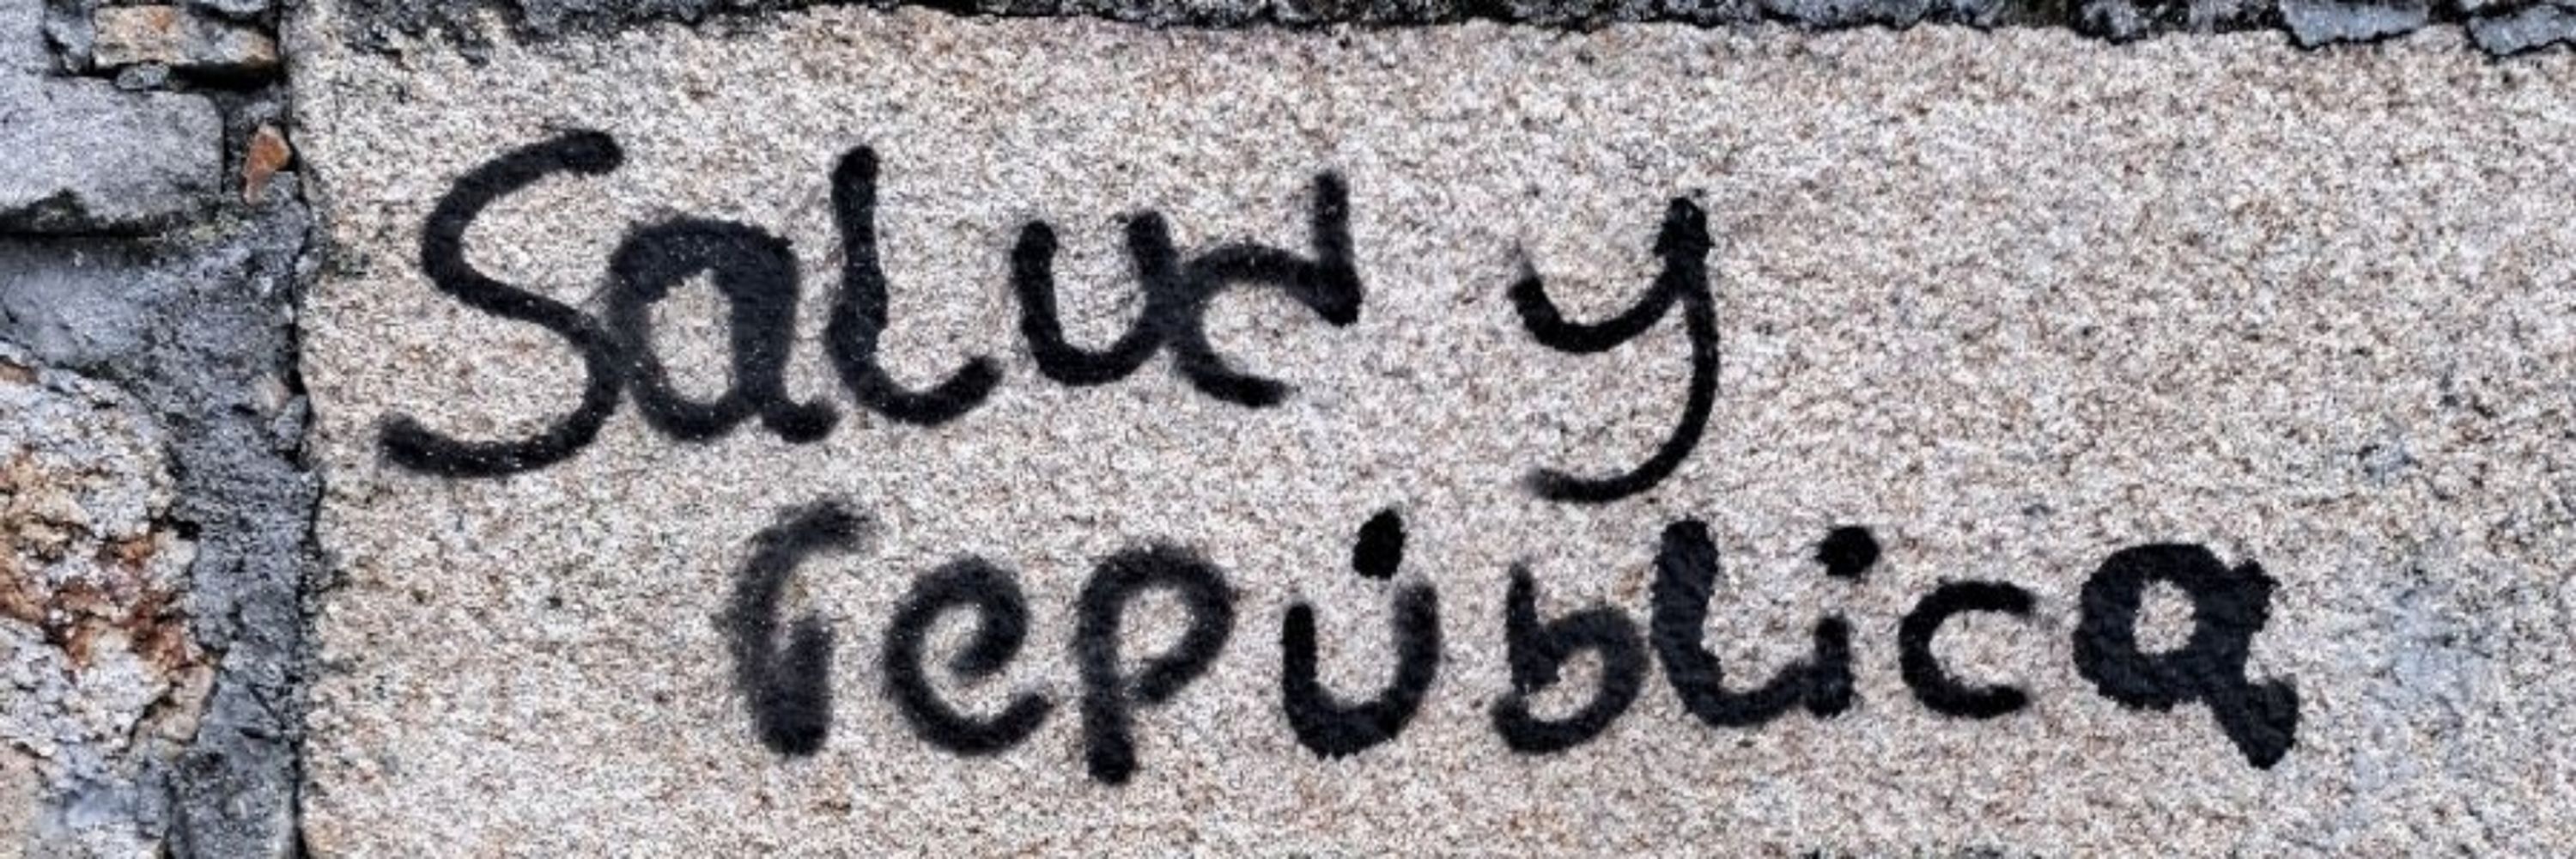 Salud y
república